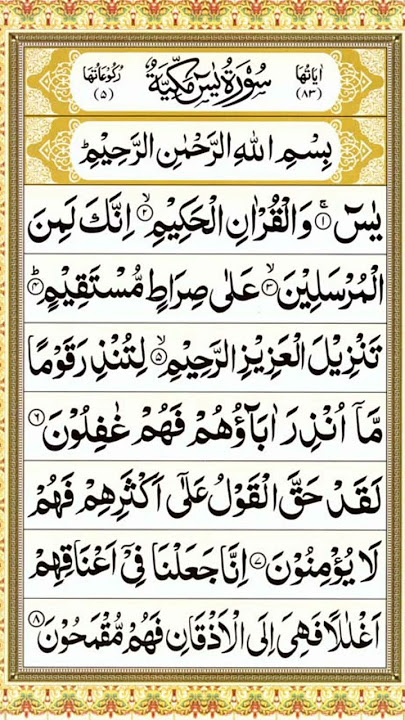 اٰيَاتُهَا (٨٣) سُوْرَةُ يٰسٓ مَكِّيَّةٌ رُكُوْعَاتُهَا (٥)
بِسْمِ اللهِ الرَّحْمٰنِ الرَّحِيْمِ
يٰسٓ ۚ﴿١﴾ وَالْقُرْاٰنِ الْحَكِيْمِ ۙ﴿٢﴾ اِنَّكَ لَمِنَ
الْمُرْسَلِيْنَ ۙ﴿٣﴾ عَلٰى صِرَاطٍ مُّسْتَقِيْمٍ ؕ﴿٤﴾
تَنْزِيْلَ الْعَزِيْزِ الرَّحِيْمِ ۙ﴿٥﴾ لِتُنْذِرَ قَوْمًا
مَّاۤ اُنْذِرَ اٰبَآؤُهُمْ فَهُمْ غٰفِلُوْنَ ﴿٦﴾
لَقَدْ حَقَّ الْقَوْلُ عَلٰۤى اَكْثَرِهِمْ فَهُمْ
لَا يُؤْمِنُوْنَ ﴿٧﴾ اِنَّا جَعَلْنَا فِيْۤ اَعْنَاقِهِمْ
اَغْلٰلًا فَهِىَ اِلَى الْاَذْقَانِ فَهُمْ مُّقْمَحُوْنَ ﴿٨﴾